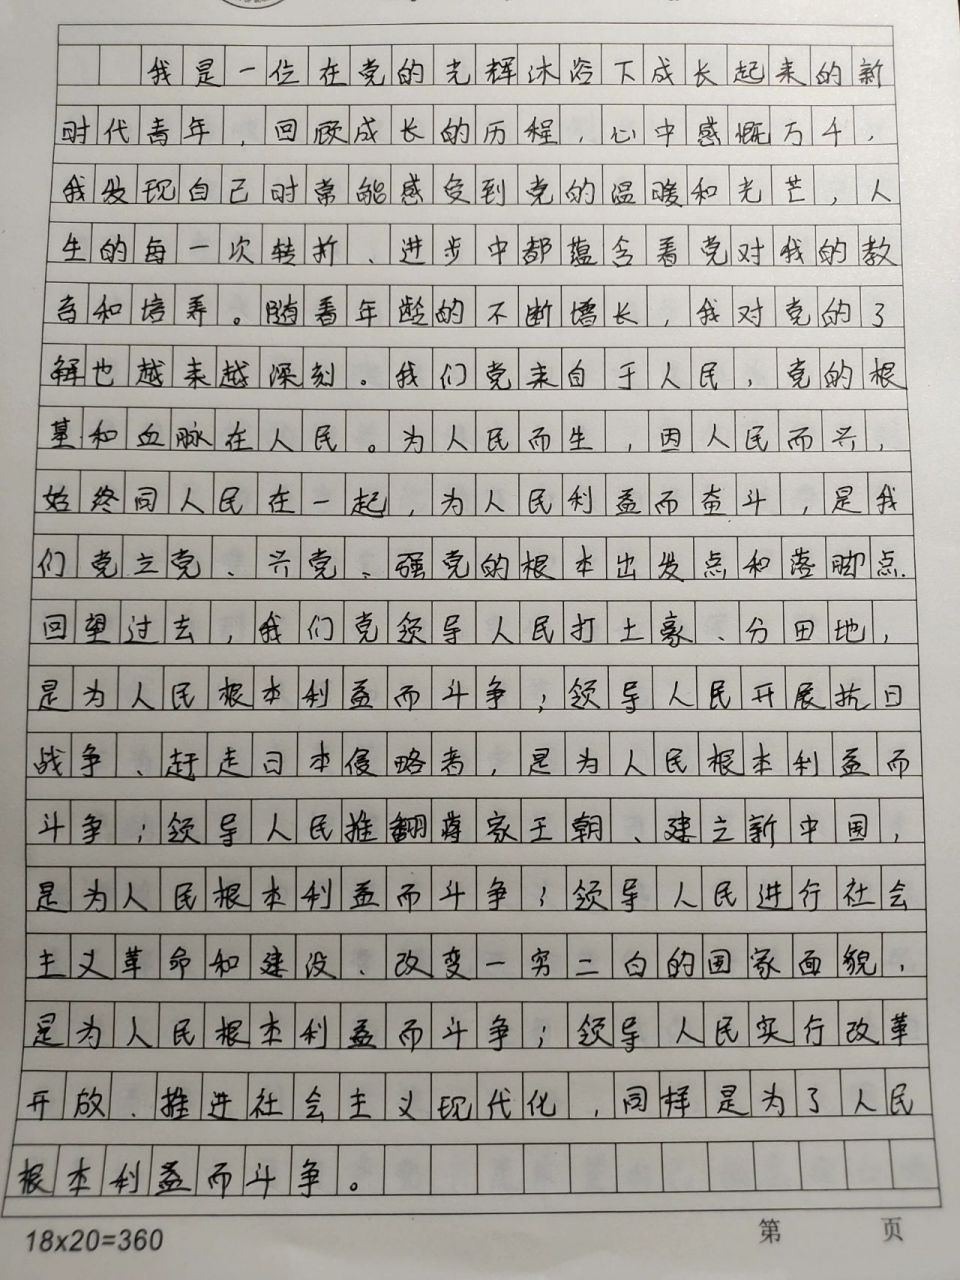 我是一位在党的光辉沐浴下成长起来的新
时代青年，回顾成长的历程，心中感慨万千，
我发现自己时常能感受到党的温暖和光芒，人
生的每一次转折、进步中都蕴含着党对我的教
育和培养。随着年龄的不断增长，我对党的了
解也越来越深刻。我们党来自于人民，党的根
基和血脉在人民。为人民而生，因人民而兴，
始终同人民在一起，为人民利益而奋斗，是我
们党立党、兴党、强党的根本出发点和落脚点.
回望过去，我们党领导人民打土豪、分田地，
是为人民根本利益而斗争；领导人民开展抗日
战争、赶走日本侵略者，是为人民根本利益而
斗争；领导人民推翻蒋家王朝、建立新中国，
是为人民根本利益而斗争；领导人民进行社会
主义革命和建设、改变一穷二白的国家面貌，
是为人民根本利益而斗争；领导人民实行改革
开放、推进社会主义现代化，同样是为了人民
根本利益而斗争。
18x20=360 第 页